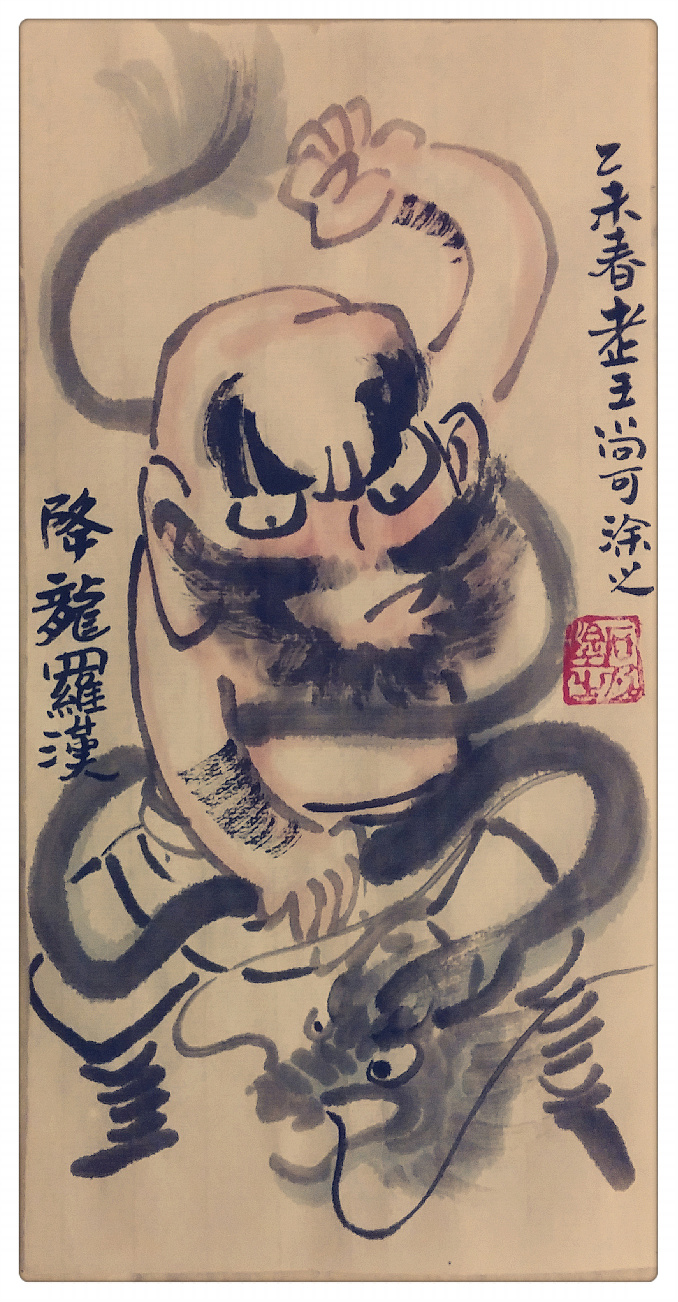 乙未春老王尚可涂之
降龍羅漢